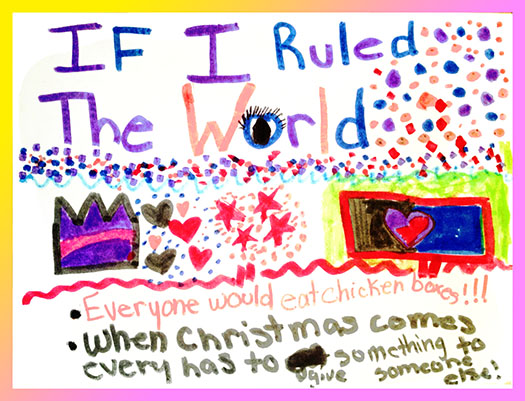 IF I Ruled
The World
• Everyone would eat chicken boxes!!!
• When Christmas comes
every has to give something to
someone
else!